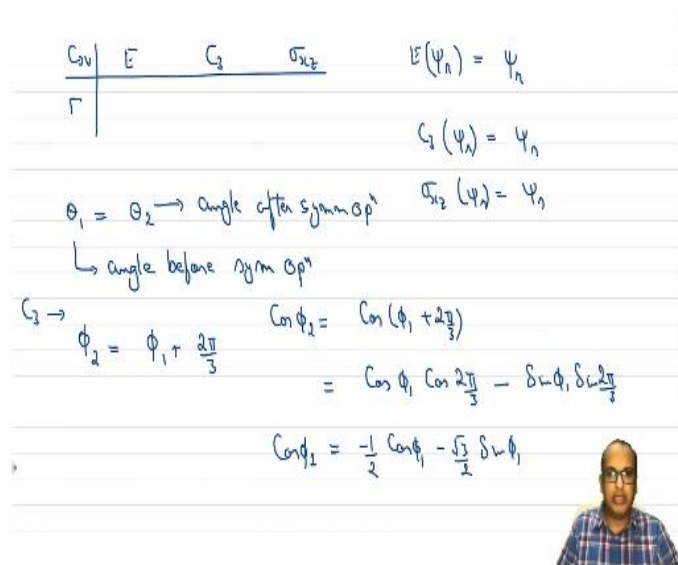 C₃ᵥ E C₃ σₓz
Γ
E(ψₙ) = ψₙ
C₃(ψₙ) = ψₙ
σₓz(ψₙ) = ψₙ
θ₁ = θ₂ → angle after symm opⁿ
↳ angle before sym opⁿ
C₃ →
ϕ₂ = ϕ₁ + 2π/3
Cosϕ₂ = Cos(ϕ₁ + 2π/3)
= Cosϕ₁ Cos 2π/3 - Sinϕ₁ Sin 2π/3
Cosϕ₂ = -1/2 Cosϕ₁ - √3/2 Sinϕ₁